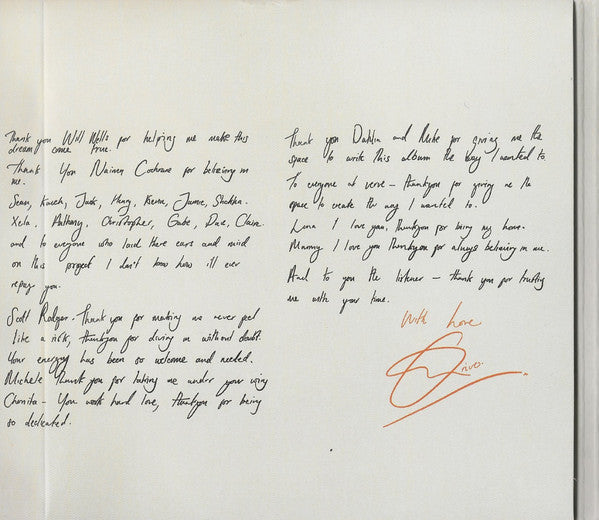 Thank you Will Wells for helping me make this
dream come true.
Thank You Naimen Cochrane for believing in
me.
Sean, Jack, Hung, Jamie,
Xela, Anthony, Christopher, Gabe, Dave, Claire
and to everyone who laid there ears and mind
on this project I don't know how i'll ever
repay you.
Scott Rodger. Thank you for making me never feel
like a risk, thankyou for diving in without doubt.
Your energy has been so welcome and needed.
Michele Thank you for taking me under your wing
You work hard love, thankyou for being
so dedicated.
Thank you Dahlia and Mike for giving me the
space to write this album the way I wanted to.
To everyone at verve - thankyou for giving me the
space to create the way I wanted to.
Luna I love you, thankyou for being my home.
Mammy I love you thankyou for always believing in me.
And to you the listener - thank you for trusting
me with your time.
With Love